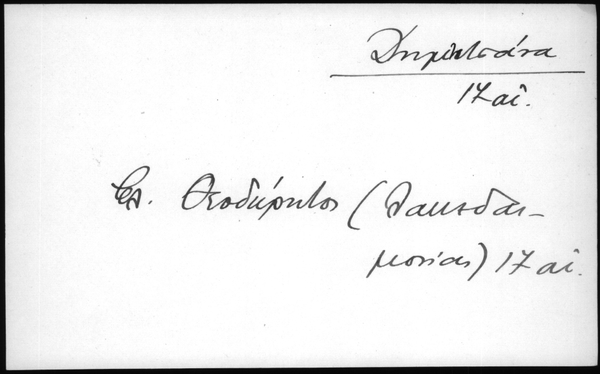 Δημητσάνα
17 αἰ.
Ἐπ. Θεοδώρητος (Λακεδαι-
μονίας) 17 αἰ.